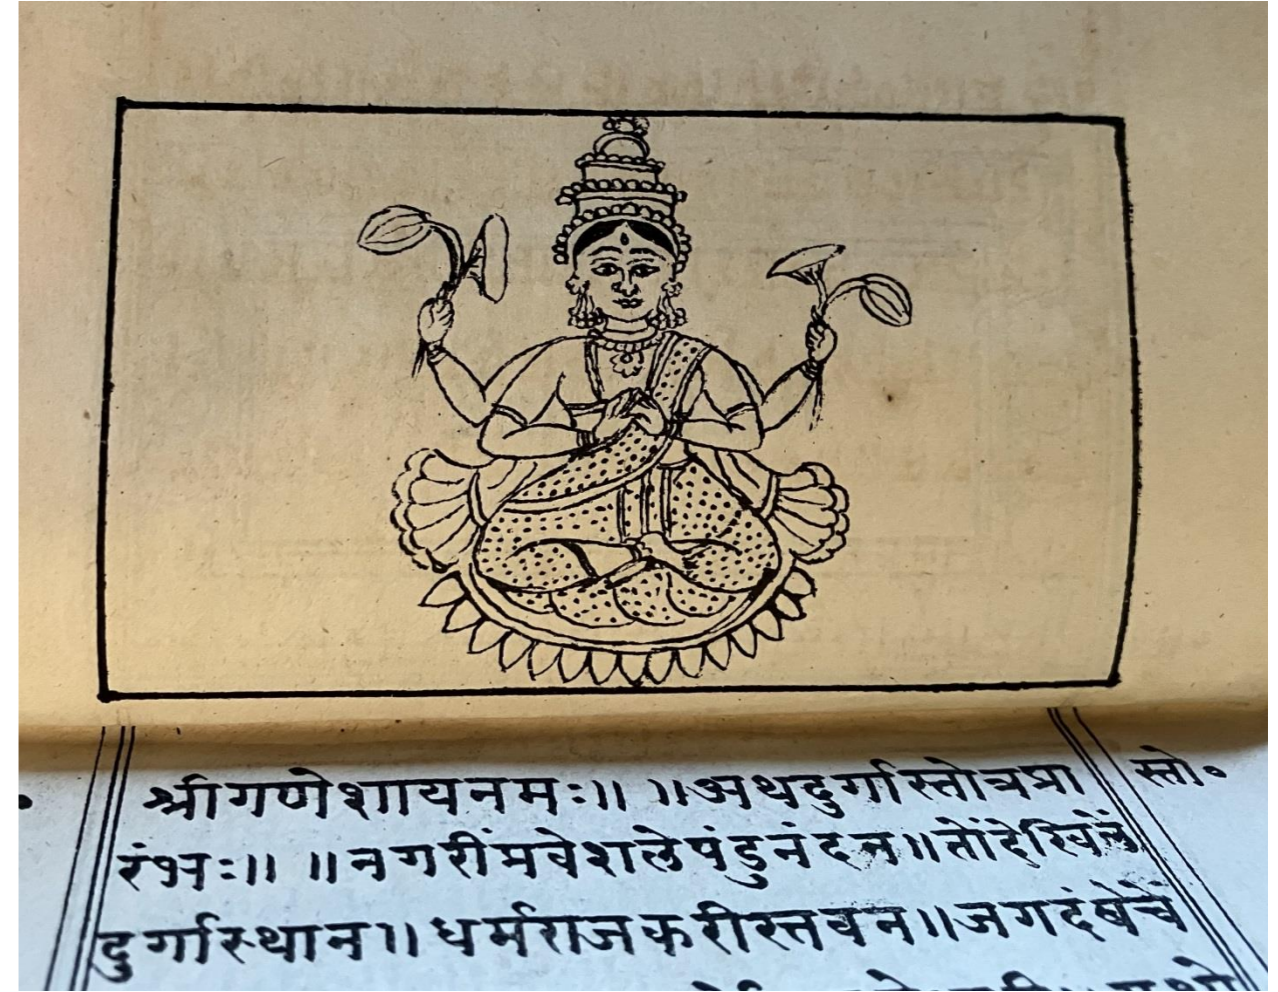 श्रीगणेशायनमः॥ ॥अथदुर्गास्तोत्रप्रा
स्तो०
रंभः॥ ॥नगरींप्रवेशलेपंडुनंदन॥तोंदेखिलें
दुर्गास्थान॥धर्मराजकरीस्तवन॥जगदंबेचें